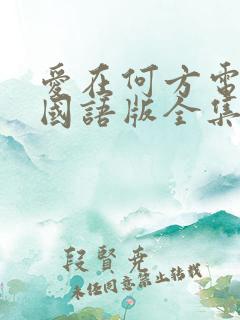 愛在何方電
國語版全集
段賢堯
未經同意禁止轉載